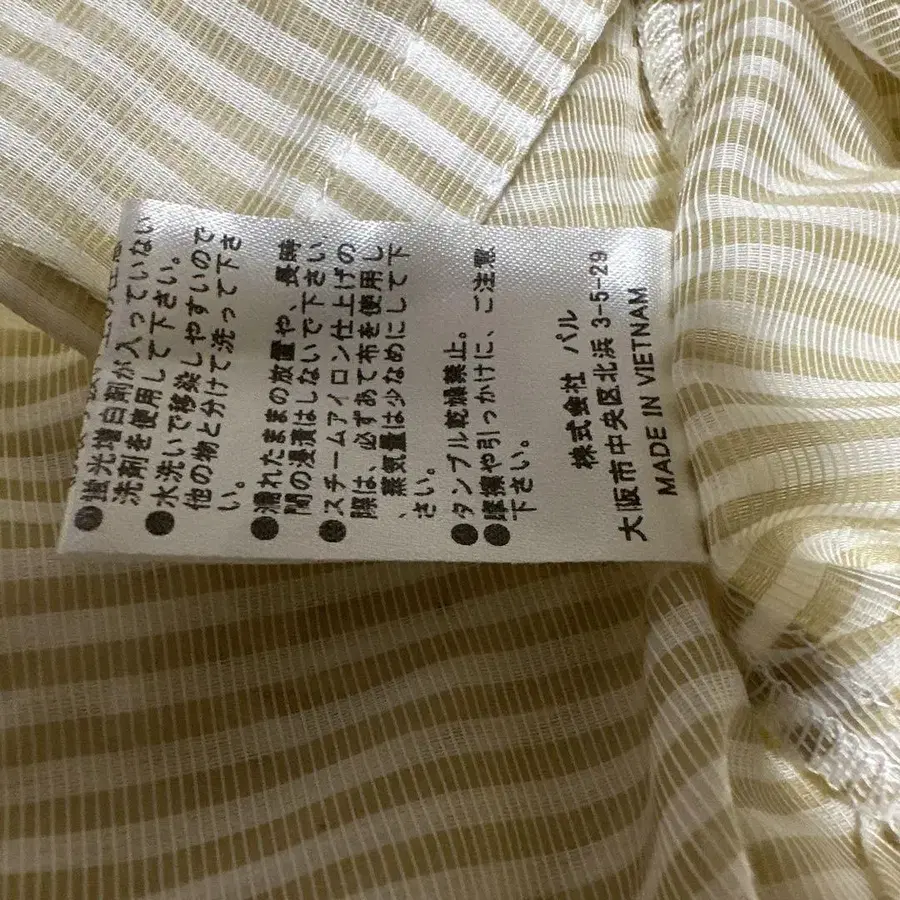 ●蛍光増白剤が入っていない
洗剤を使用して下さい。
●水洗いで移染しやすいので
他の物と分けて洗って下さ
い。
●濡れたままの放置や、長時
間の浸漬はしないで下さい
●スチームアイロン仕上げの
際は、必ずあて布を使用し
、蒸気量は少なめにして下
さい。
●タンブル乾燥禁止。
●摩擦や引っかけに、ご注意
下さい。
株式会社 パル
大阪市中央区北浜 3-5-29
MADE IN VIETNAM